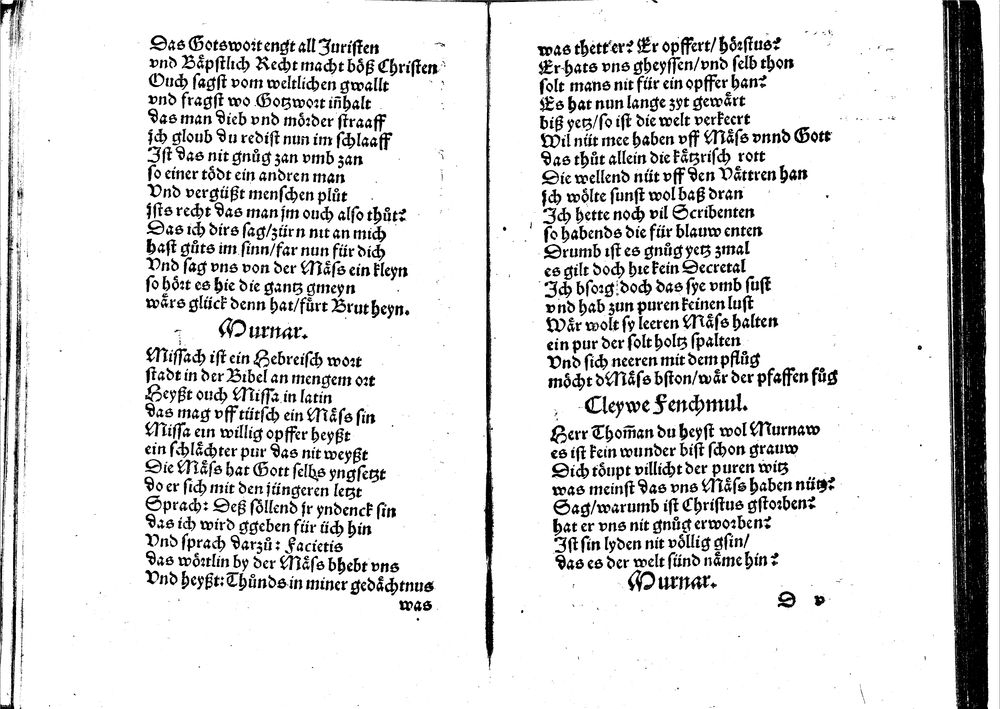 Das Gotswort engt all Juristen
vnd Bäpstlich Recht macht böß Christen
Ouch sagst vom weltlichen gwallt
vnd fragst wo Gotzwort iñhalt
das man dieb vnd mörder straaff
jch gloub du redist nun im schlaaff
Ist das nit gnůg zan vmb zan
so einer tödt ein andren man
Vnd vergüßt menschen plůt
jsts recht das man jm ouch also thůt?
Das ich dirs sag/zürn nit an mich
hast gůts im sinn/far nun für dich
Vnd sag vns von der Mäss ein kleyn
so hört es hie die gantz gmeyn
wärs glück denn hat/fürt Brut heyn.
Murnar.
Missach ist ein Hebreisch wort
stadt in der Bibel an mengem ort
Heyßt ouch Missa in latin
das mag vff tütsch ein Mäss sin
Missa ein willig opffer heyßt
ein schlächter pur das nit weyßt
Die Mäss hat Gott selbs yngsetzt
do er sich mit den jüngeren letzt
Sprach: Deß söllend jr yndenck sin
das ich wird ggeben für üch hin
Vnd sprach darzů: Facietis
das wörtlin by der Mäss bhebt vns
Vnd heyßt: Thůnds in miner gedächtnus
was
was thett er? Er opffert/hörstus?
Er hats vns gheyssen/vnd selb thon
solt mans nit für ein opffer han?
Es hat nun lange zyt gewärt
biß yetz/so ist die welt verkeert
Wil nüt mee haben vff Mäss vnnd Gott
das thůt allein die kätzrisch rott
Die wellend nüt vff den Vättren han
jch wölte sunst wol baß dran
Ich hette noch vil Scribenten
so habends die für blauw enten
Drumb ist es gnůg yetz zmal
es gilt doch hie kein Decretal
Ich bsorg doch das sye vmb sust
vnd hab zun puren keinen lust
Wär wolt sy leeren Mäss halten
ein pur der solt holtz spalten
Vnd sich neeren mit dem pflůg
möcht dMäss bston/wär der pfaffen fůg
Cleywe Fenchmul.
Herr Thom̃an du heyst wol Murnaw
es ist kein wunder bist schon grauw
Dich töupt villicht der puren witz
was meinst das vns Mäss haben nütz?
Sag/warumb ist Christus gstorben?
hat er vns nit gnůg erworben?
Ist sin lyden nit völlig gsin/
das es der welt sünd näme hin?
Murnar.
D v